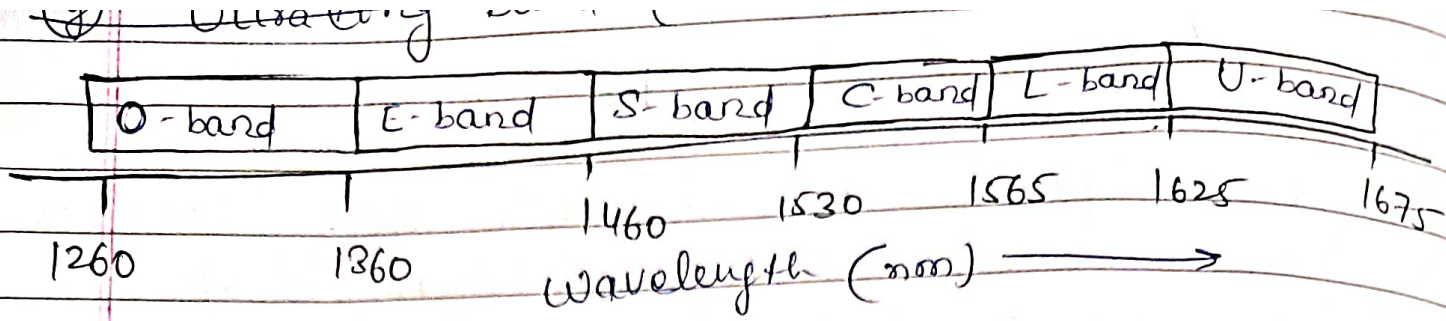 O - band E - band S - band C - band L - band U - band
1260 1360 1460 1530 1565 1625 1675
wavelength (nm)